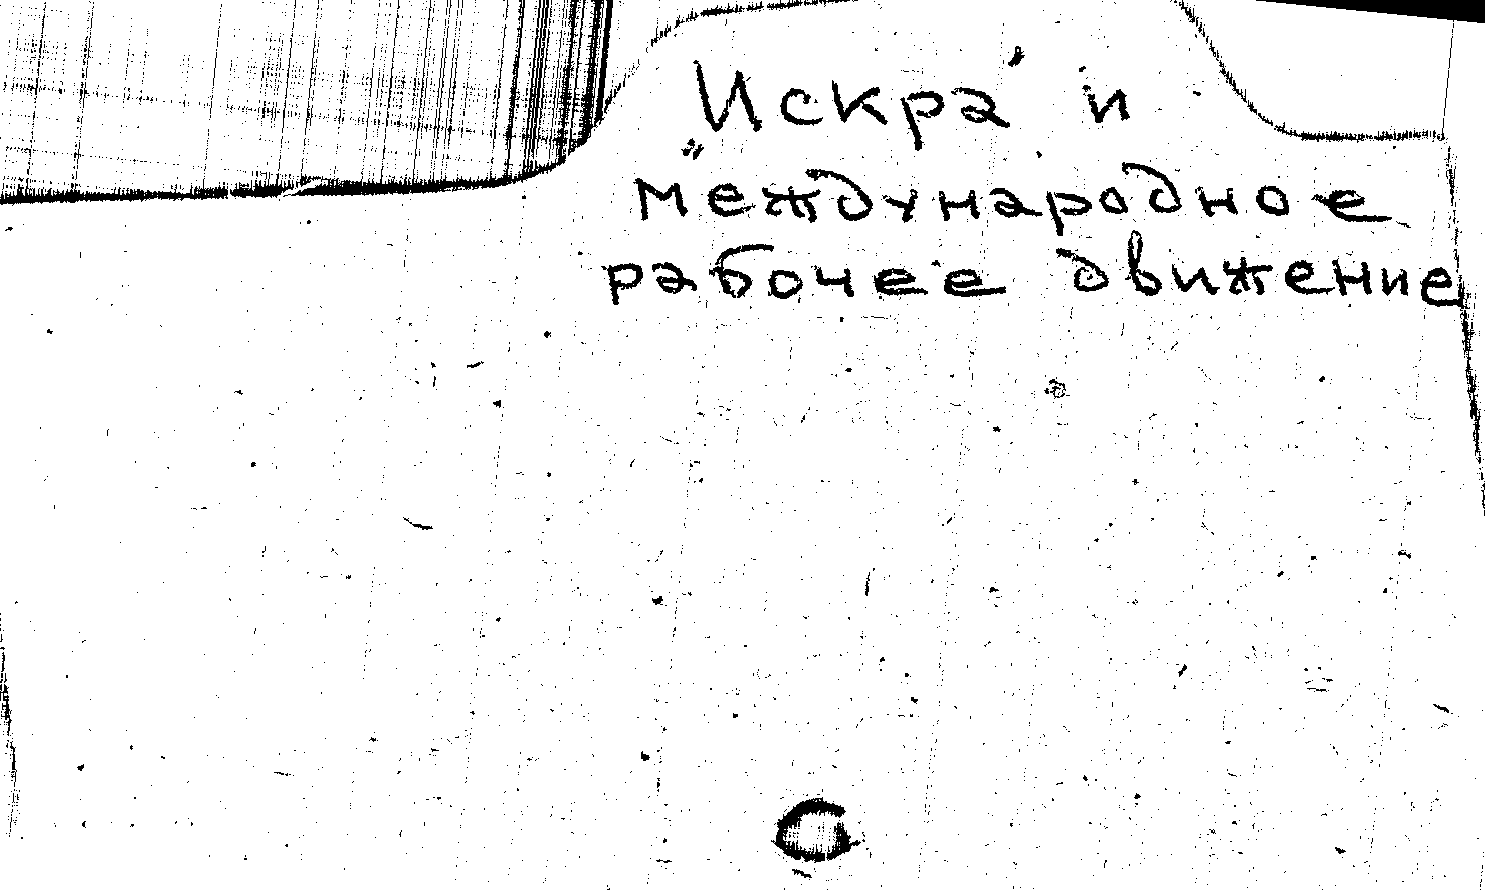 „Искра“ и
международное
рабочее движение